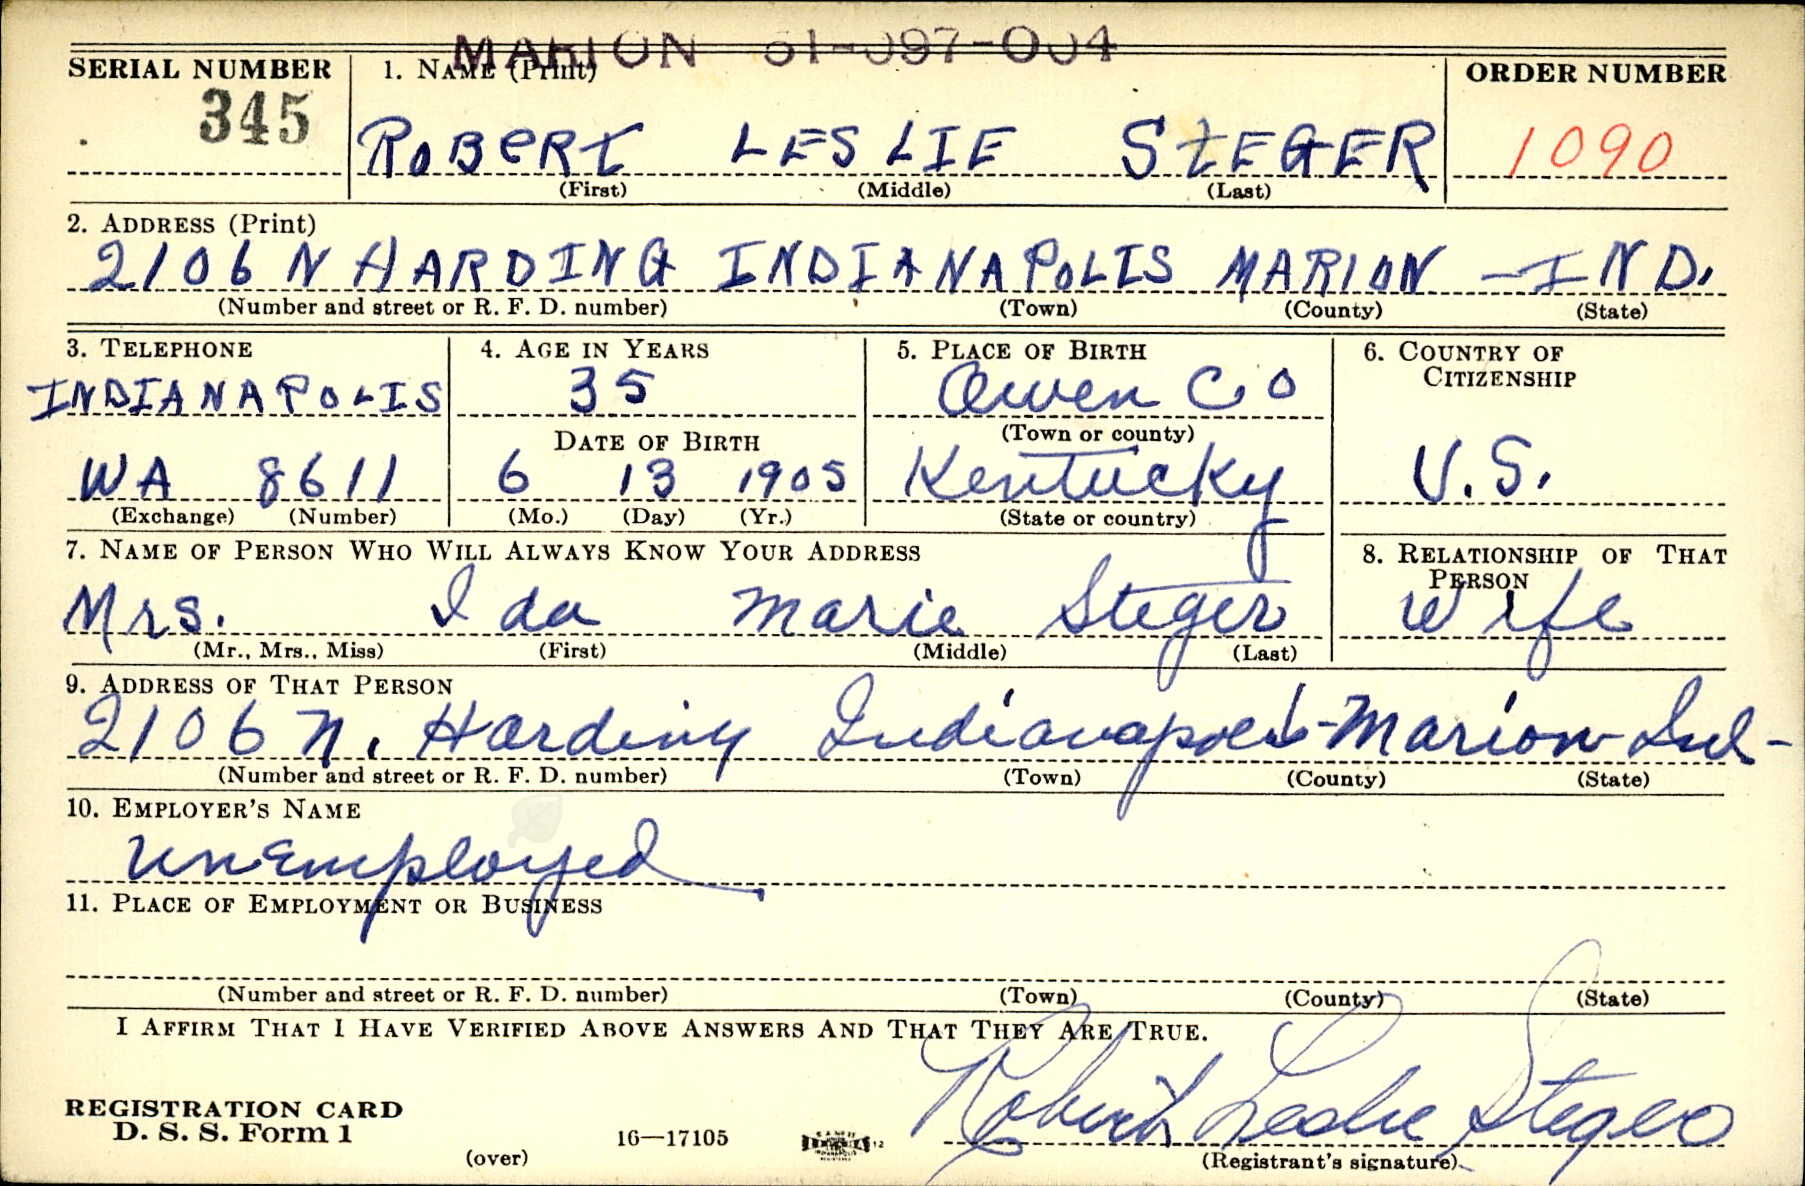 MARION 51-097-004
SERIAL NUMBER 1. NAME (Print) ORDER NUMBER
345 ROBERT LESLIE STEGER 1090
(First) (Middle) (Last)
2. ADDRESS (Print)
2106 N HARDING INDIANAPOLIS MARION - IND.
(Number and street or R. F. D. number) (Town) (County) (State)
3. TELEPHONE 4. AGE IN YEARS 5. PLACE OF BIRTH 6. COUNTRY OF CITIZENSHIP
INDIANAPOLIS 35 Owen Co
DATE OF BIRTH (Town or county)
WA 8611 6 13 1905 Kentucky U.S.
(Exchange) (Number) (Mo.) (Day) (Yr.) (State or country)
7. NAME OF PERSON WHO WILL ALWAYS KNOW YOUR ADDRESS 8. RELATIONSHIP OF THAT PERSON
Mrs. Ida Marie Steger Wife
(Mr., Mrs., Miss) (First) (Middle) (Last)
9. ADDRESS OF THAT PERSON
2106 N. Harding Indianapolis-Marion Ind-
(Number and street or R. F. D. number) (Town) (County) (State)
10. EMPLOYER'S NAME
unEmployed
11. PLACE OF EMPLOYMENT OR BUSINESS
(Number and street or R. F. D. number) (Town) (County) (State)
I AFFIRM THAT I HAVE VERIFIED ABOVE ANSWERS AND THAT THEY ARE TRUE.
Robert Leslie Steger
REGISTRATION CARD
D. S. S. Form 1 16—17105 12
(over) (Registrant's signature)